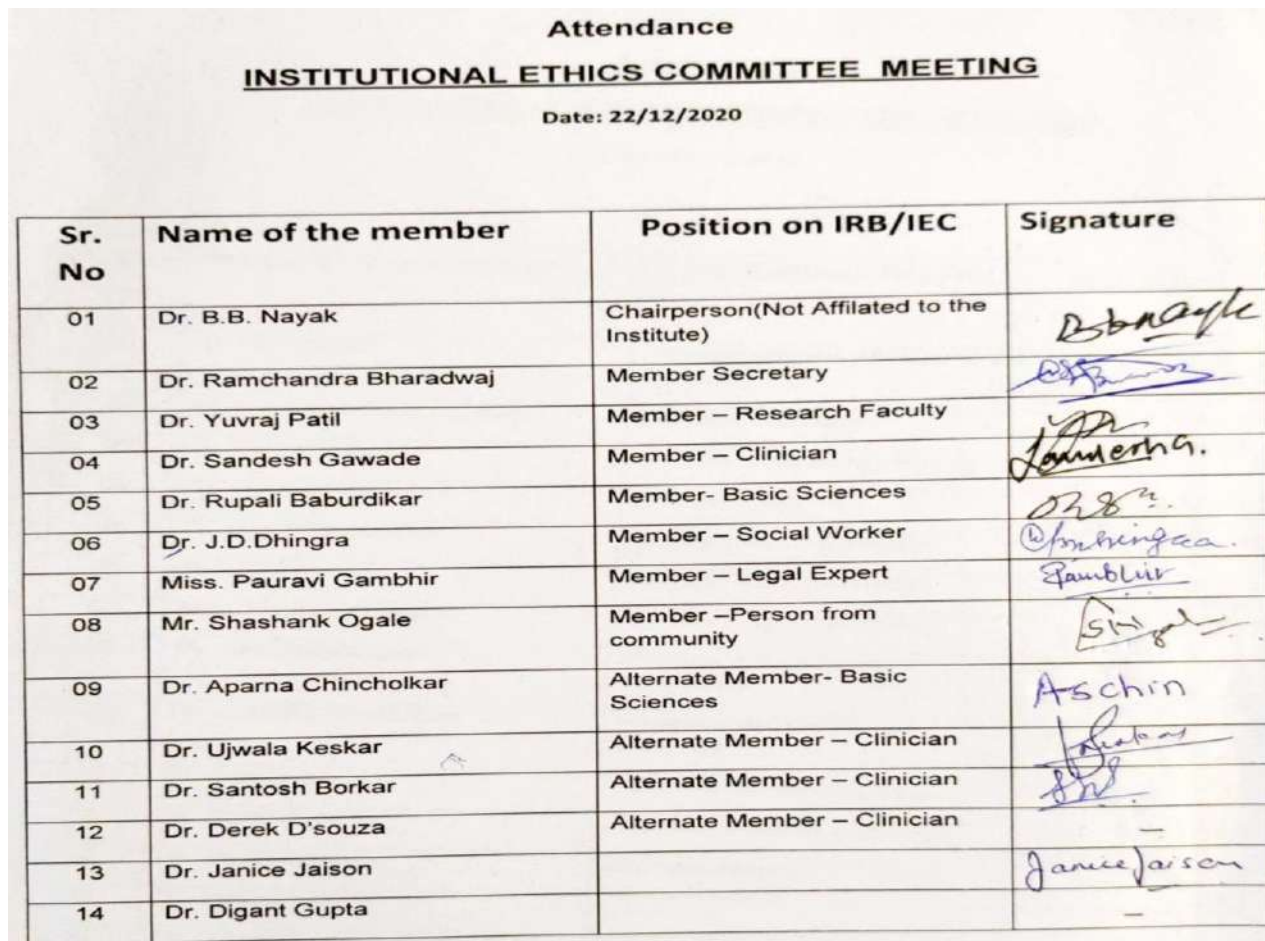 Attendance
INSTITUTIONAL ETHICS COMMITTEE MEETING
Date: 22/12/2020
Sr. No Name of the member Position on IRB/IEC Signature
01 Dr. B.B. Nayak Chairperson(Not Affilated to the Institute) Bbnayak
02 Dr. Ramchandra Bharadwaj Member Secretary
03 Dr. Yuvraj Patil Member – Research Faculty
04 Dr. Sandesh Gawade Member – Clinician
05 Dr. Rupali Baburdikar Member- Basic Sciences
06 Dr. J.D.Dhingra Member – Social Worker
07 Miss. Pauravi Gambhir Member – Legal Expert
08 Mr. Shashank Ogale Member –Person from community
09 Dr. Aparna Chincholkar Alternate Member- Basic Sciences Aschin
10 Dr. Ujwala Keskar Alternate Member – Clinician
11 Dr. Santosh Borkar Alternate Member – Clinician
12 Dr. Derek D'souza Alternate Member – Clinician –
13 Dr. Janice Jaison Janice Jaison
14 Dr. Digant Gupta –